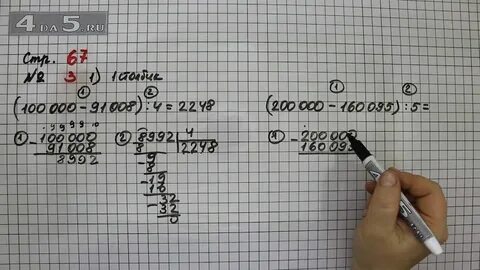 4DA5.RU
Стр. 67
№ 3 1) 1 столбик
① ②
(100 000 − 91 008) : 4 = 2248
① − 100 000
91 008
8 992
② 8992 | 4
8 | 2248
− 9
8
− 19
16
− 32
32
0
① ②
(200 000 − 160 095) : 5 =
① − 200 000
160 095